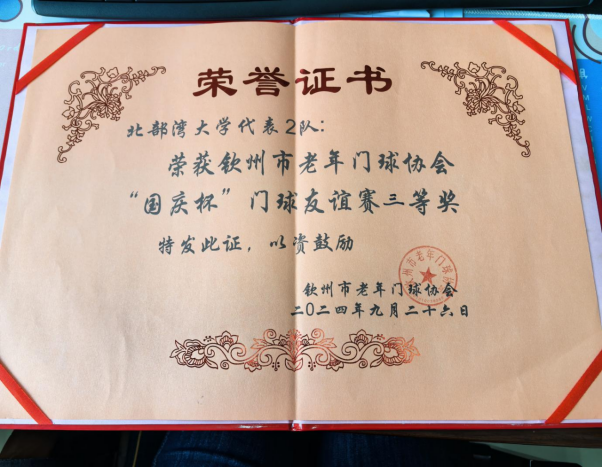 荣誉证书
北部湾大学代表2队：
荣获钦州市老年门球协会
“国庆杯”门球友谊赛三等奖
特发此证，以资鼓励
钦州市老年门球协会
二〇二四年九月二十六日